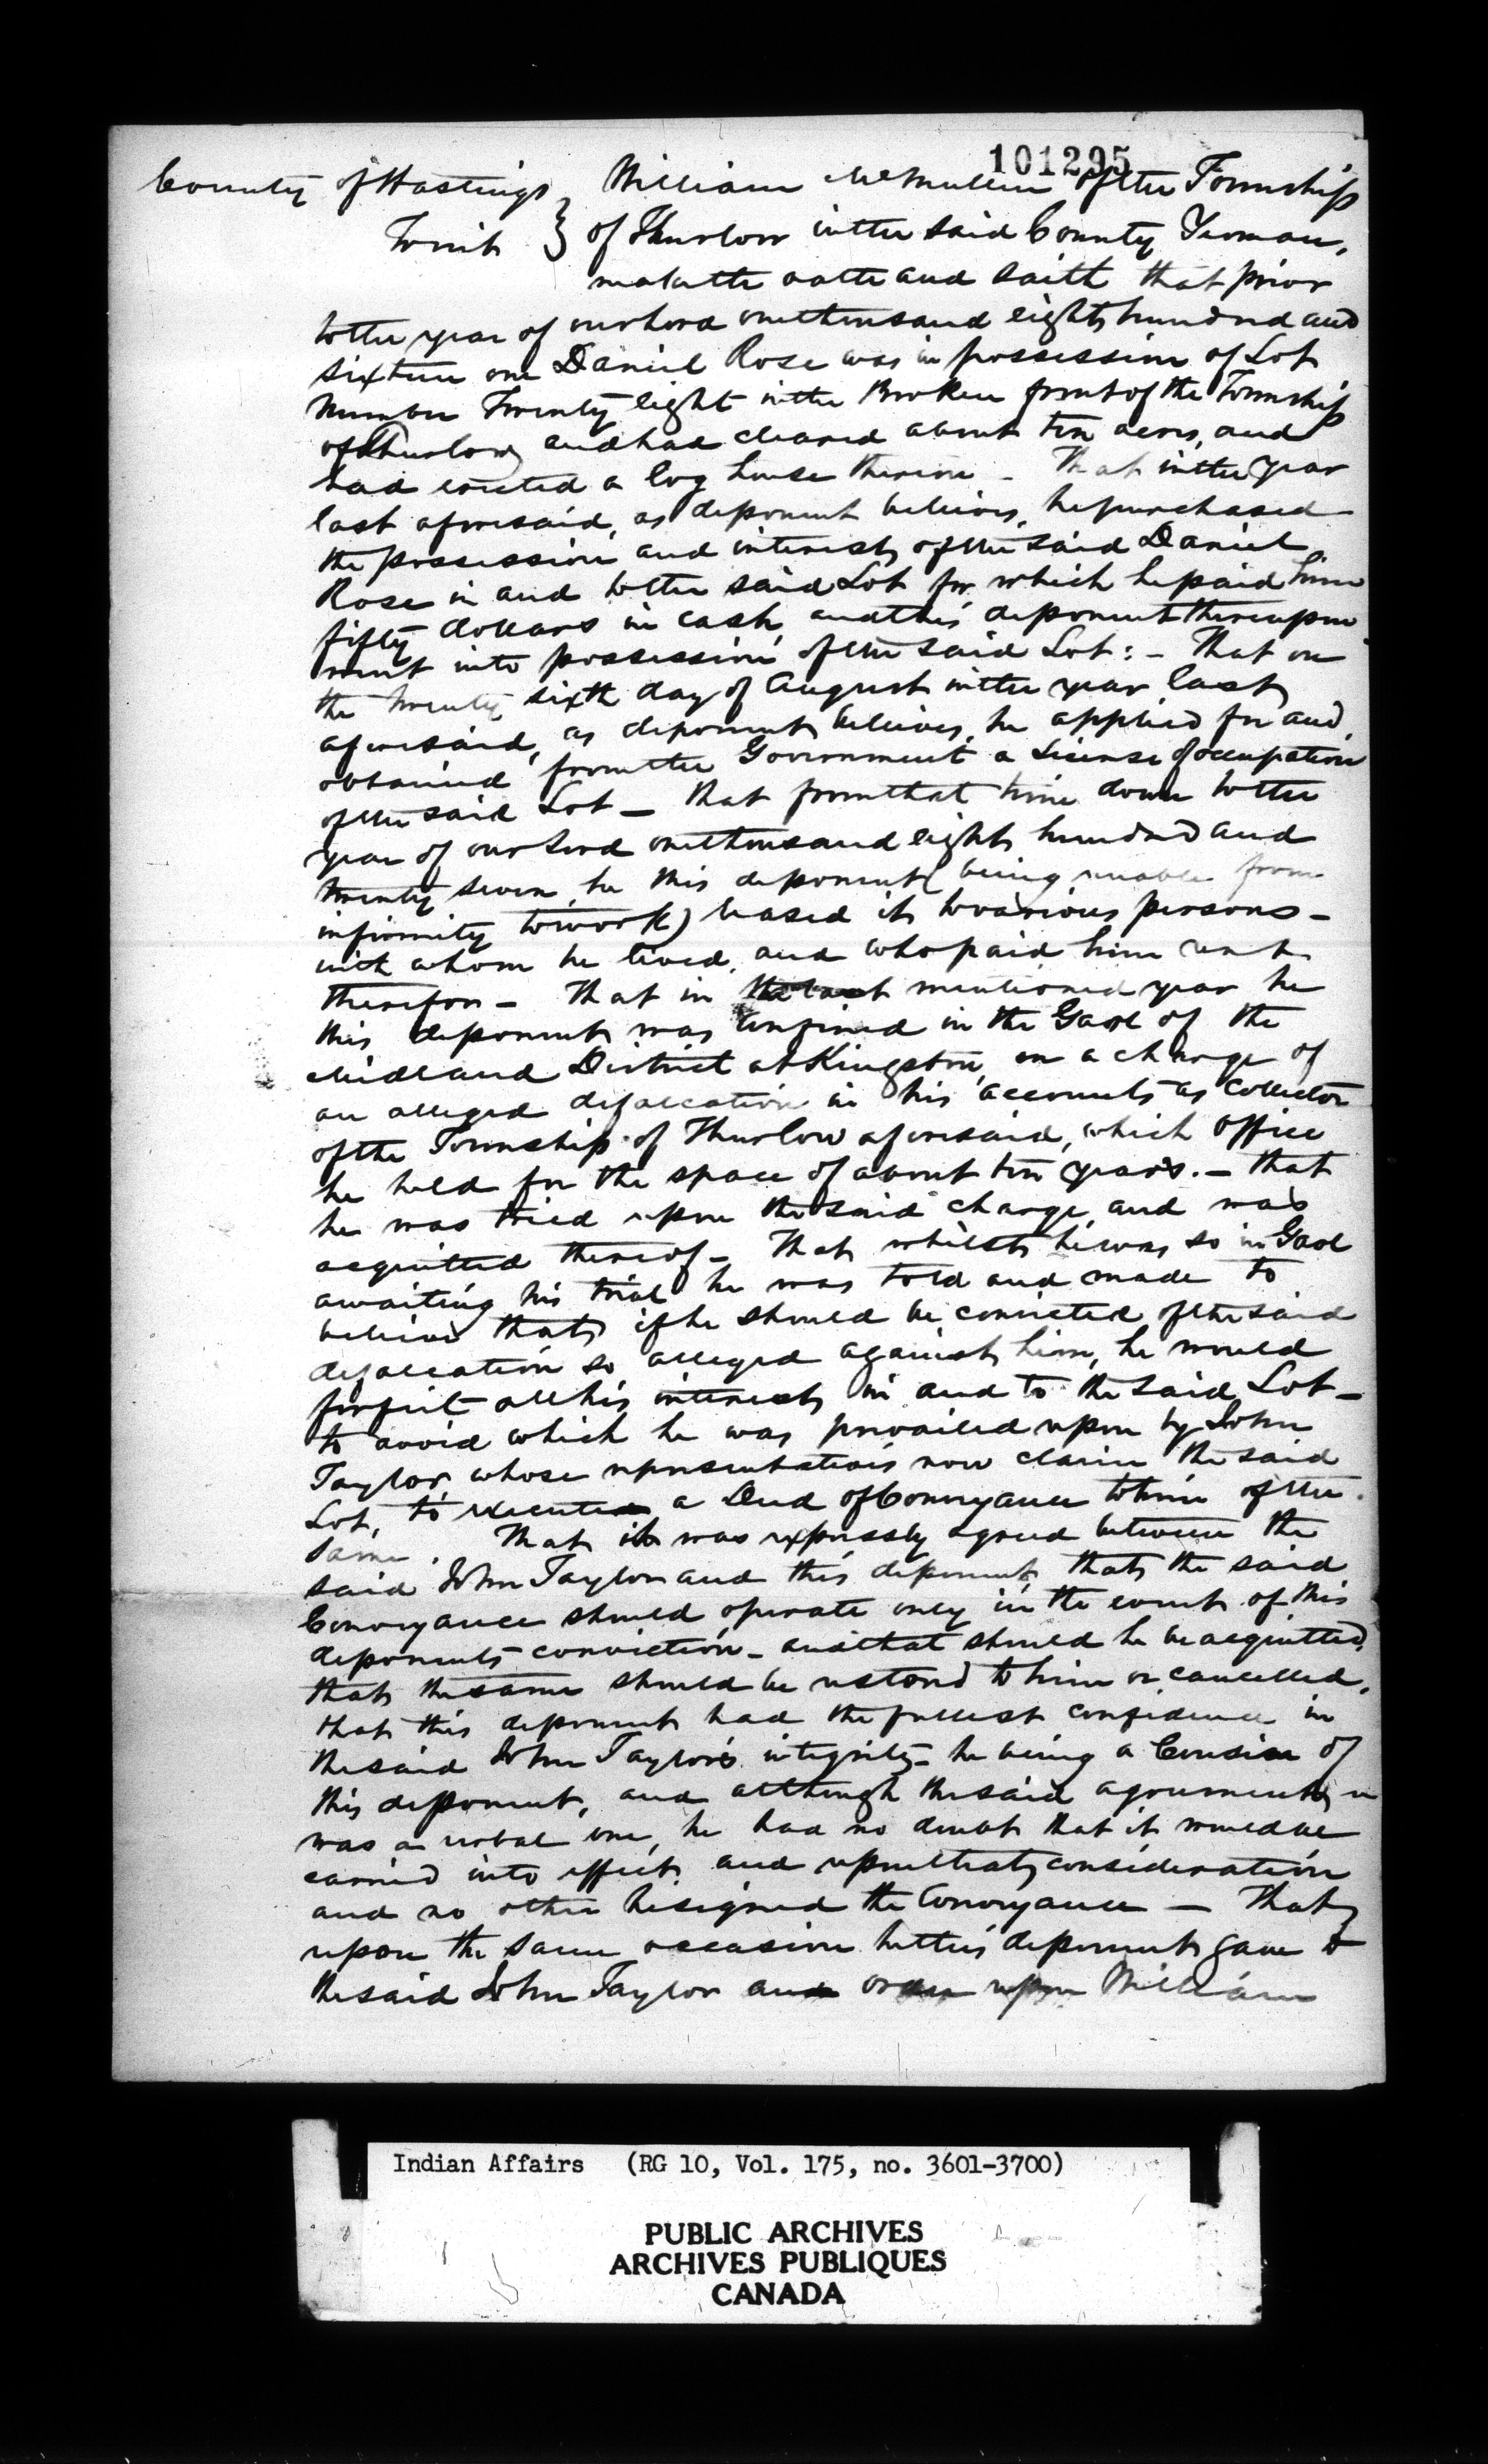 101295
County of Hastings } William McMullen of the Township
To wit } of Thurlow in the said County Yeoman,
maketh oath and saith that prior
to the year of our Lord one thousand eight hundred and
sixteen one Daniel Rose was in possession of Lot
Number Twenty eight in the Broken front of the Township
of Thurlow, and had cleared about ten acres, and
had erected a log house thereon - That in the year
last aforesaid, as deponent believes, he purchased
the possession and interest of the said Daniel
Rose in and to the said Lot for which he paid him
fifty dollars in cash, and this deponent thereupon
went into possession of the said Lot: - That on
the twenty sixth day of August in the year last
aforesaid, as deponent believes, he applied for and
obtained from the Government a License of occupation
of the said Lot - That from that time down to the
year of our Lord one thousand eight hundred and
twenty seven, he this deponent (being unable from
infirmity to work) leased it to various persons -
with whom he lived, and who paid him rent
therefor - That in the last mentioned year he
this deponent was confined in the Gaol of the
Midland District at Kingston, on a charge of
an alleged defalcation in his accounts as Collector
of the Township of Thurlow aforesaid, which office
he held for the space of about ten years. - That
he was tried upon the said charge and was
acquitted thereof - That whilst he was so in Gaol
awaiting his trial he was told and made to
believe that if he should be convicted of the said
defalcation so alleged against him, he would
forfeit all his interest in and to the said Lot -
to avoid which he was prevailed upon by John
Taylor, whose representatives now claim the said
Lot, to execute a Deed of Conveyance to him of the
same. That it was expressly agreed between the
said John Taylor and this deponent, that the said
Conveyance should operate only in the event of this
deponents conviction - and that should he be acquitted,
that the same should be restored to him or cancelled,
that this deponent had the fullest confidence in
the said John Taylor's integrity - he being a Cousin of
this deponent, and although the said agreement
was a verbal one, he had no doubt that it would be
carried into effect, and upon that consideration
and no other he signed the Conveyance - That
upon the same occasion he this deponent gave to
the said John Taylor an order upon William
Indian Affairs (RG 10, Vol. 175, no. 3601-3700)
PUBLIC ARCHIVES
ARCHIVES PUBLIQUES
CANADA